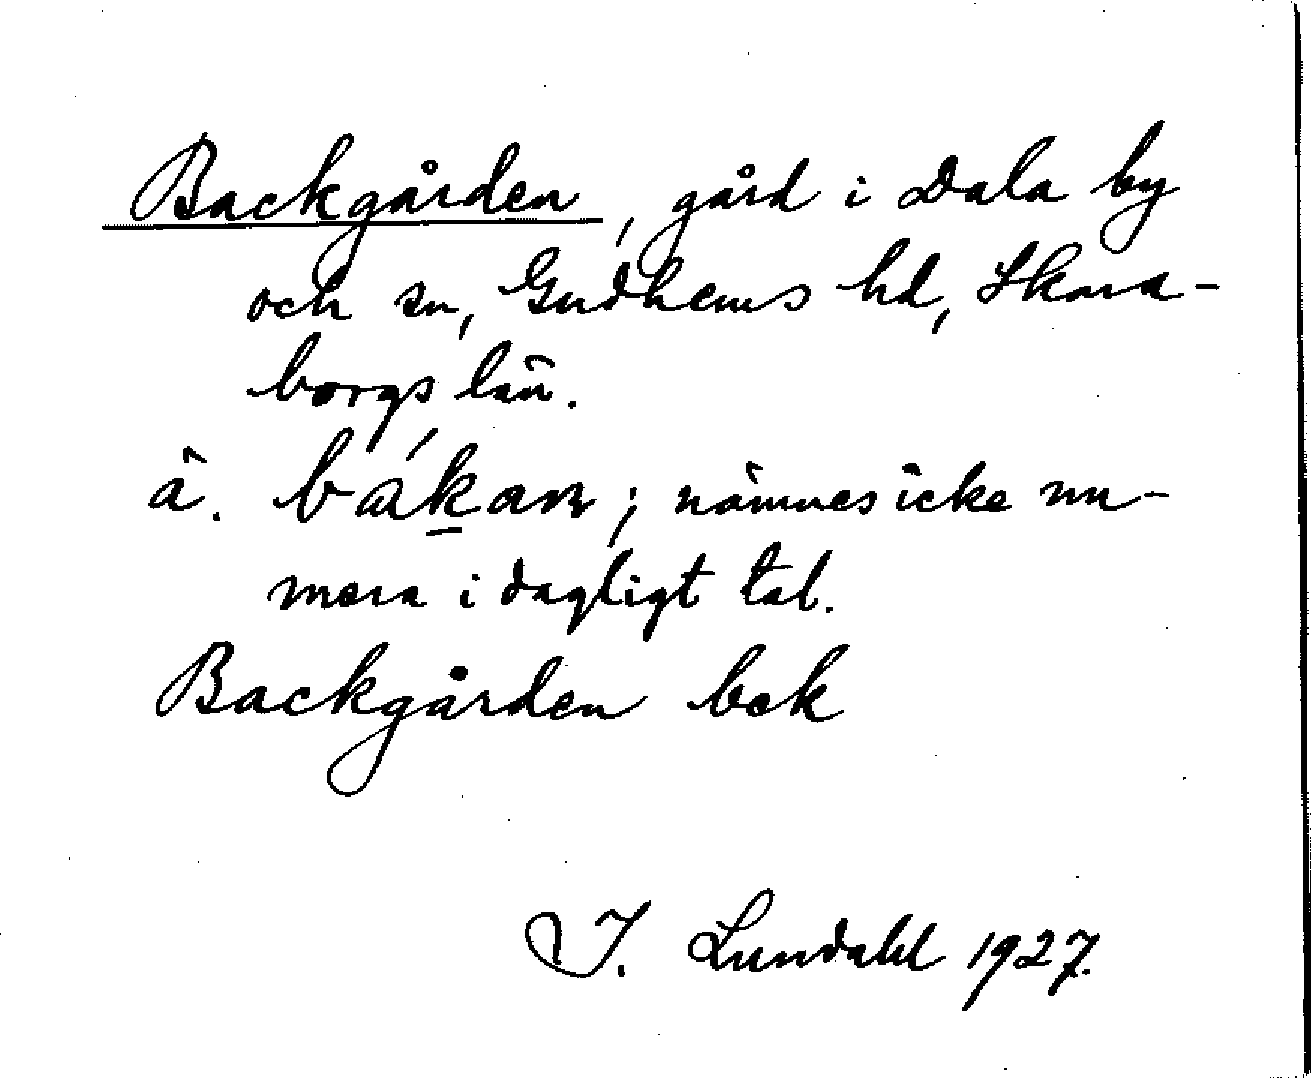 Backgården, gård i Dala by
och sn, Gudhems hd, Skara-
borgs län.
ä. bákan; nämnes icke nu-
mera i dagligt tal.
Backgården bek
I. Lundahl 1927.